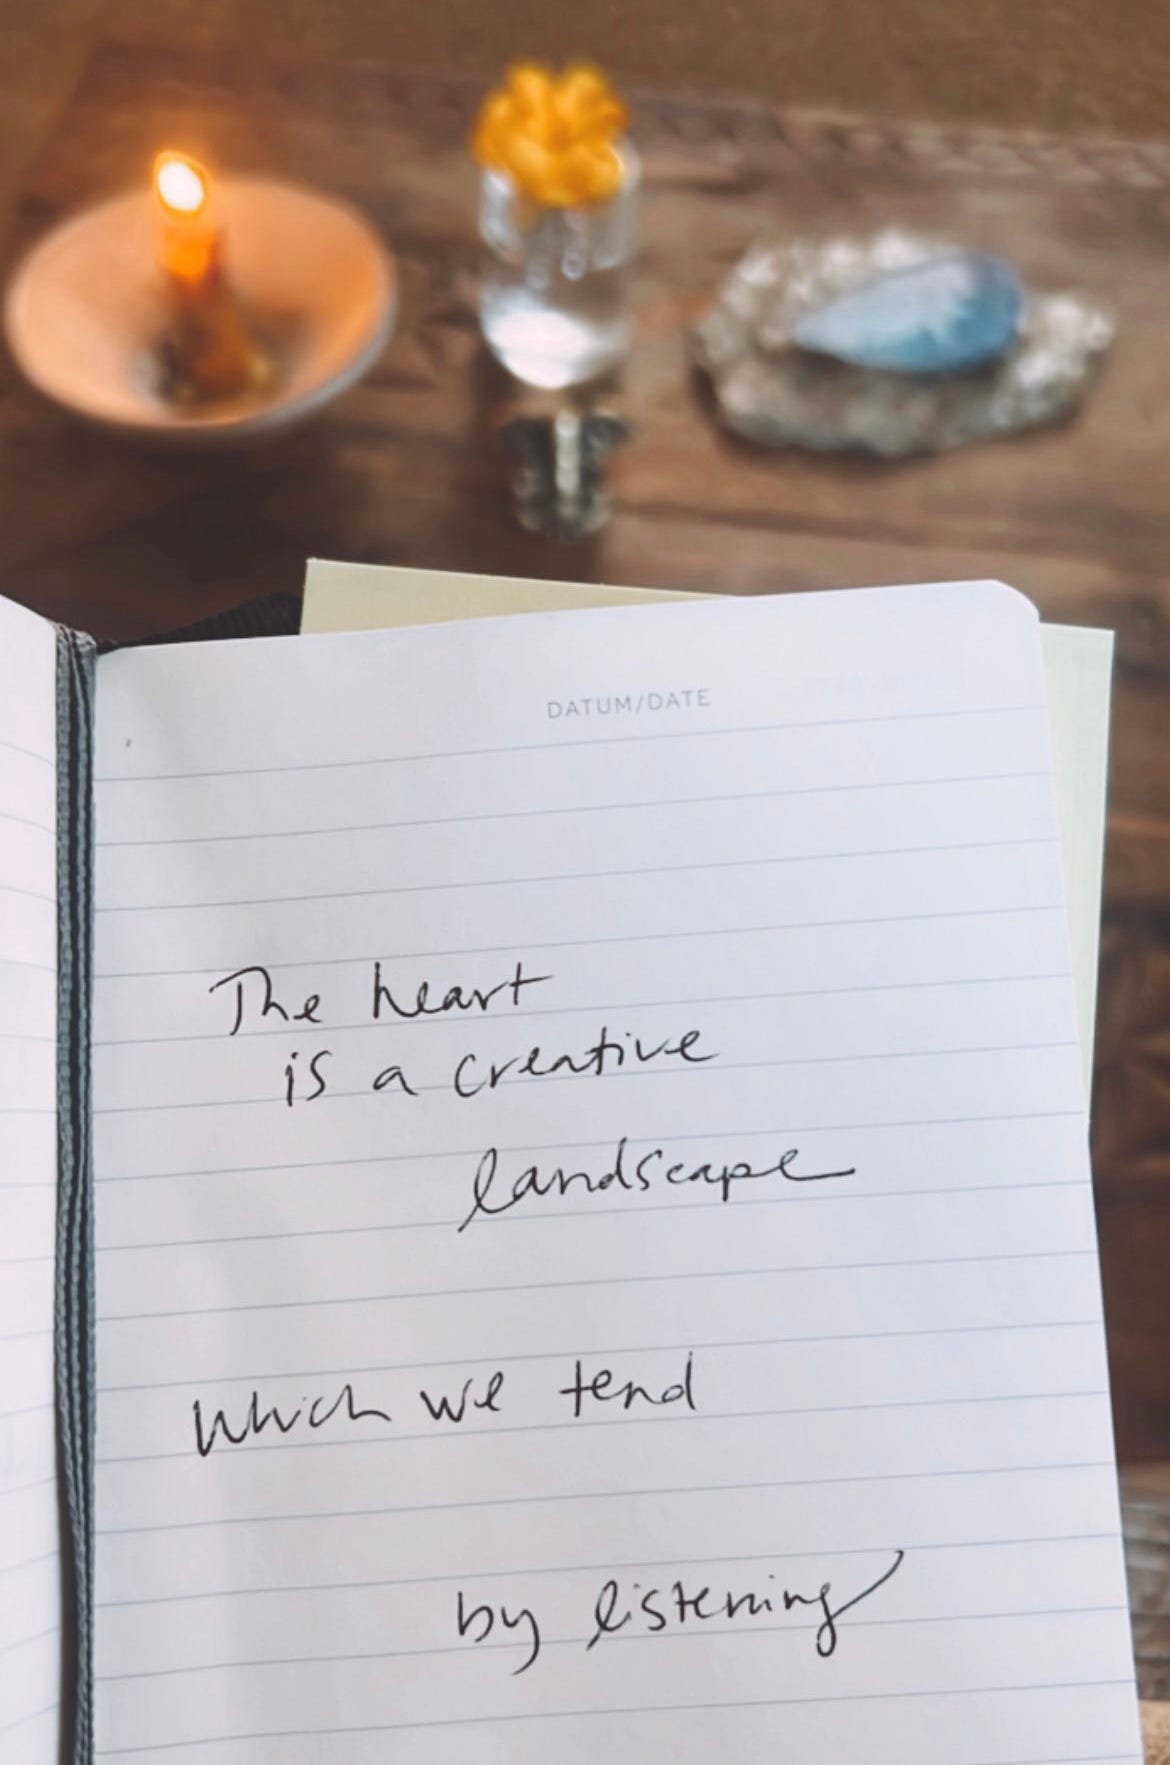 DATUM/DATE
The heart
is a creative
landscape
which we tend
by listening